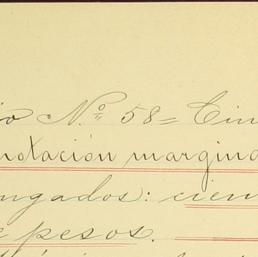 io Nº 58= Cin
notación margina
ngados: cien
e pesos.